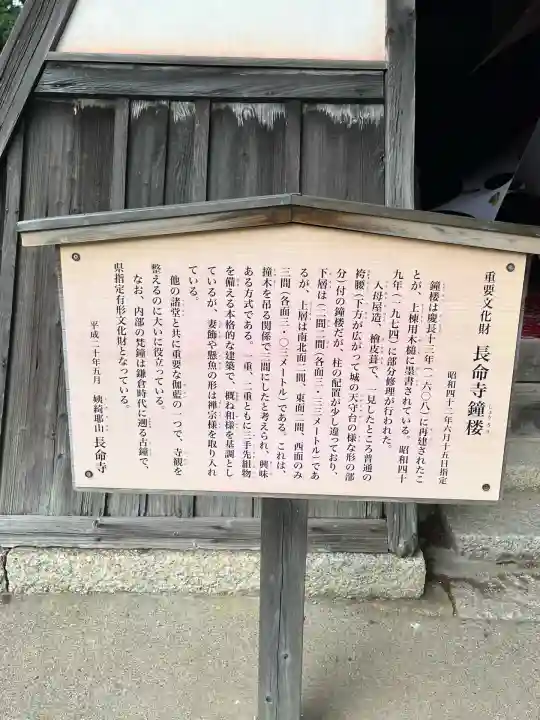 重要文化財　長命寺鐘楼
しょうろう
昭和四十二年六月十五日指定
鐘楼は慶長十三年(一六〇八)に再建されたこ
とが、上棟用木槌に墨書されている。昭和四十
九年(一九七四)に部分修理が行われた。
入母屋造、檜皮葺で、一見したところ普通の
袴腰(下方が広がって城の天守台の様な形の部
分)付の鐘楼だが、柱の配置が少し違っており、
下層は二間二間(各面三・三三メートル)であ
るが、上層は南北面二間、東面二間、西面のみ
三間(各面三・〇三メートル)である。これは、
撞木を吊る関係で三間にしたと考えられ、興味
ある方式である。一重、二重ともに三手先組物
を備える本格的な建築で、概ね和様を基調とし
ているが、妻飾や懸魚の形は禅宗様を取り入れ
ている。
他の諸堂と共に重要な伽藍の一つで、寺観を
整えるのに大いに役立っている。
なお、内部の梵鐘は鎌倉時代に遡る古鐘で、
県指定有形文化財となっている。
平成二十年五月　姨綺耶山　長命寺